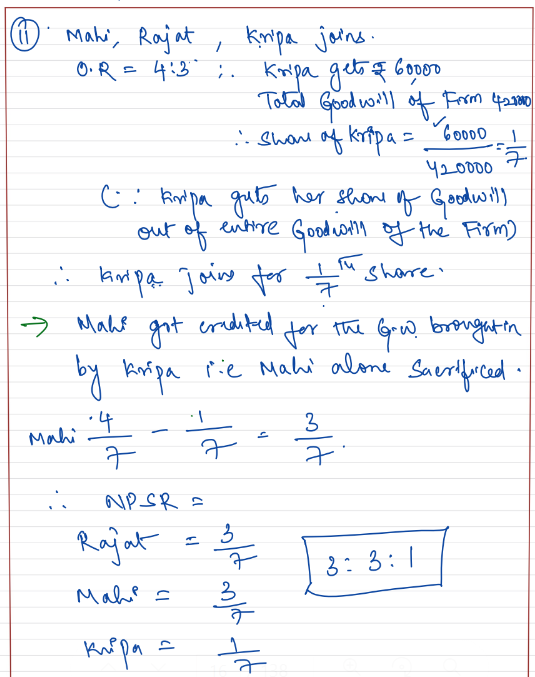 (ii) Mahi, Rajat, Kripa joins.
O.R = 4:3 ∴ Kripa gets ₹ 60000
Total Goodwill of Firm 420000
∴ Share of Kripa = 60000/420000 = 1/7
(∵ Kripa gets her share of Goodwill
out of entire Goodwill of the Firm)
∴ Kripa Joins for 1/7th share.
→ Mahi got credited for the G.W. brought in
by Kripa i.e Mahi alone Sacrificed.
Mahi 4/7 - 1/7 = 3/7.
∴ NPSR =
Rajat = 3/7
3:3:1
Mahi = 3/7
Kripa = 1/7